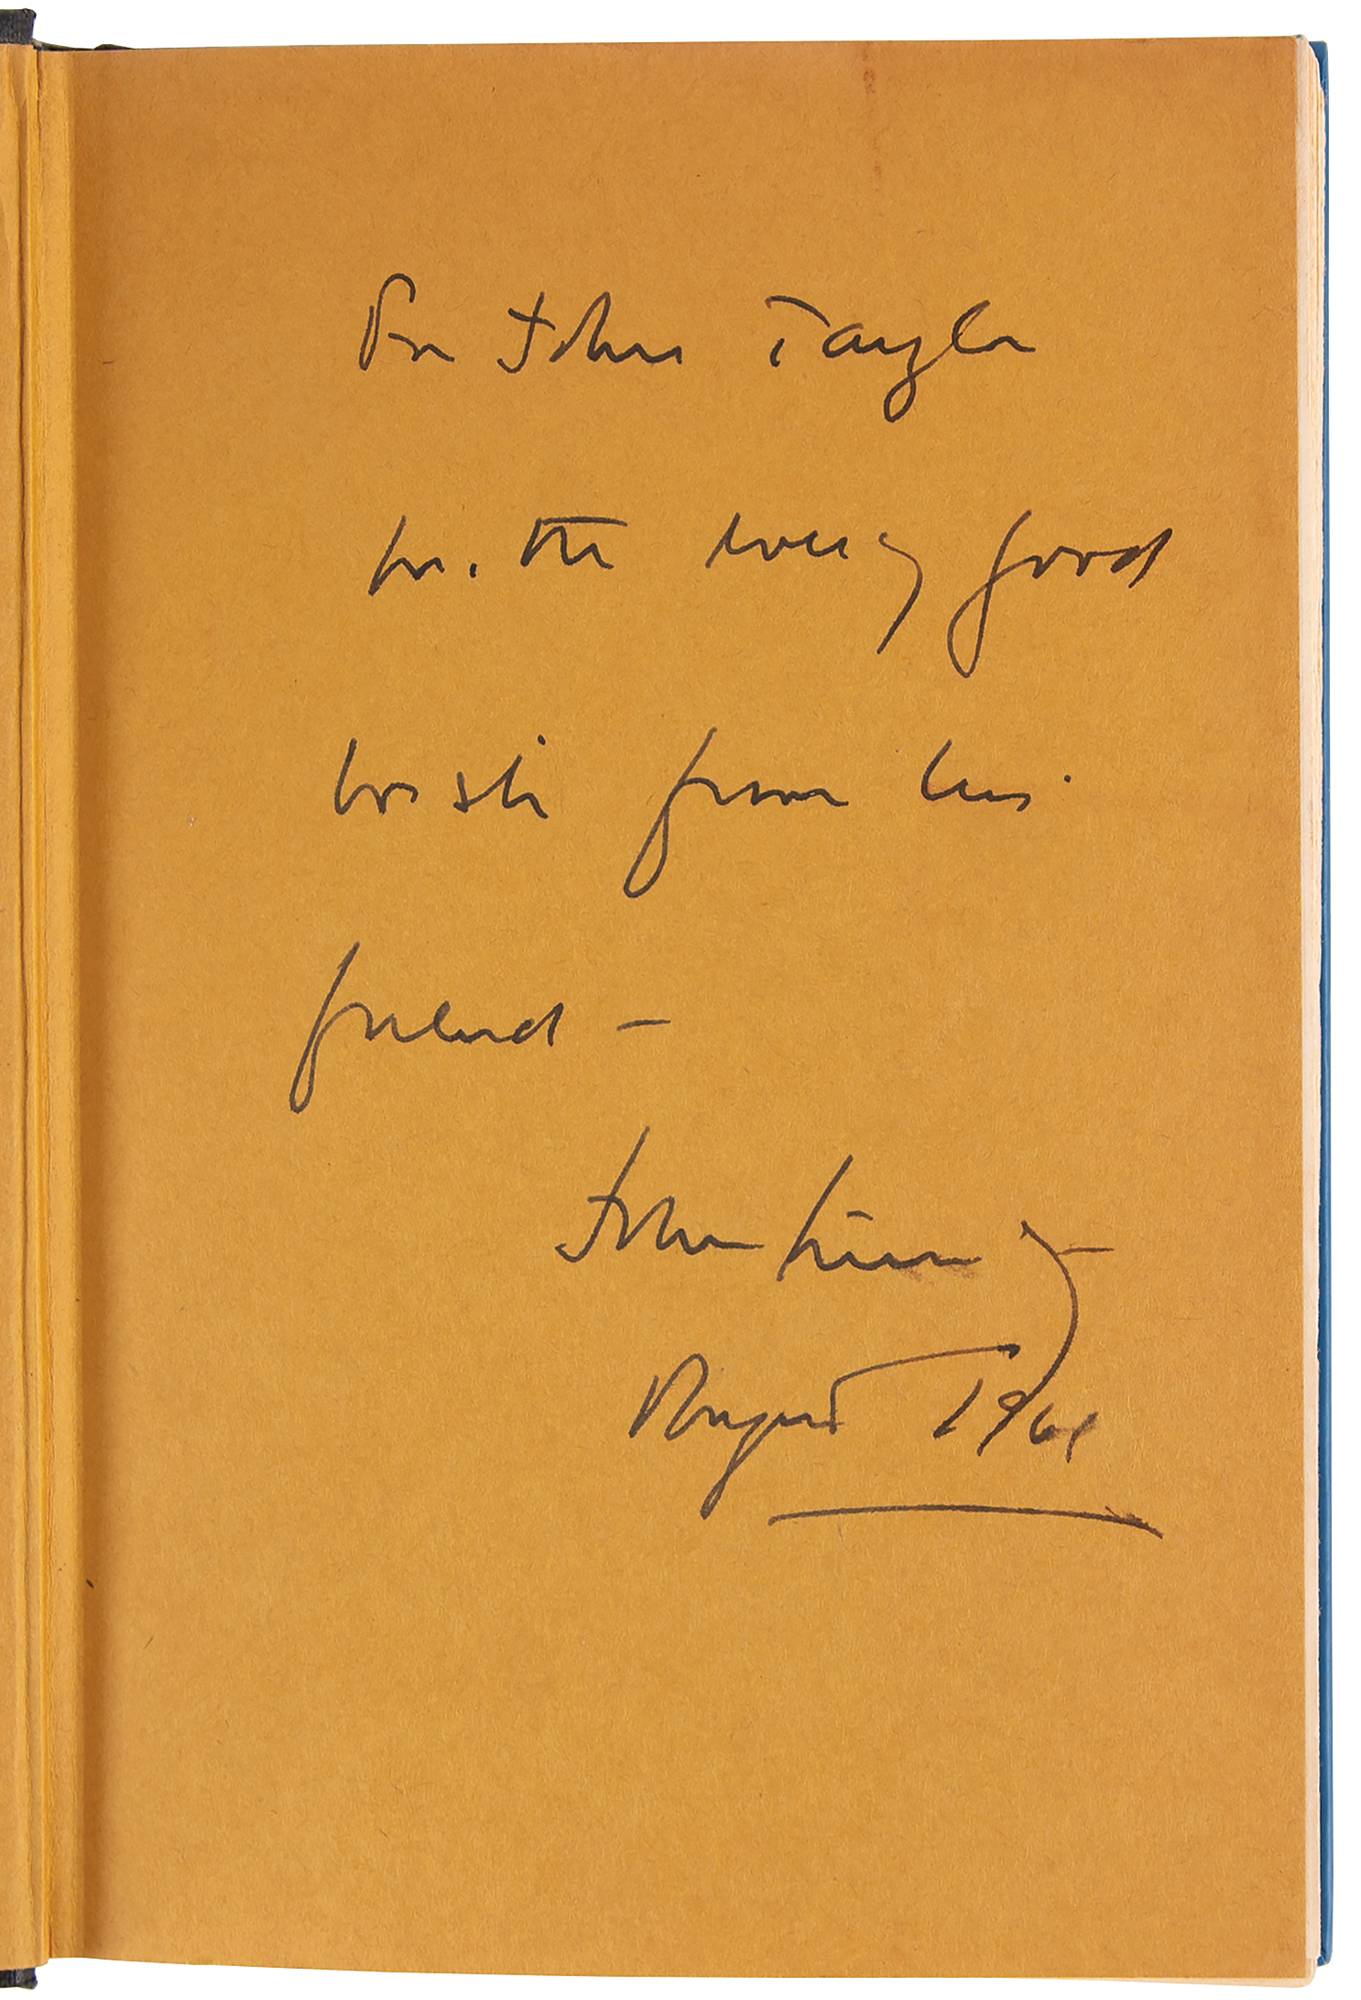 For John Taylor
with every good
wish from his
friend –
John
August 1961